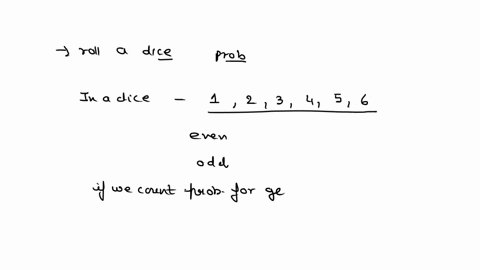 → roll a dice prob
In a dice - 1, 2, 3, 4, 5, 6
even
odd
if we count prob. for ge